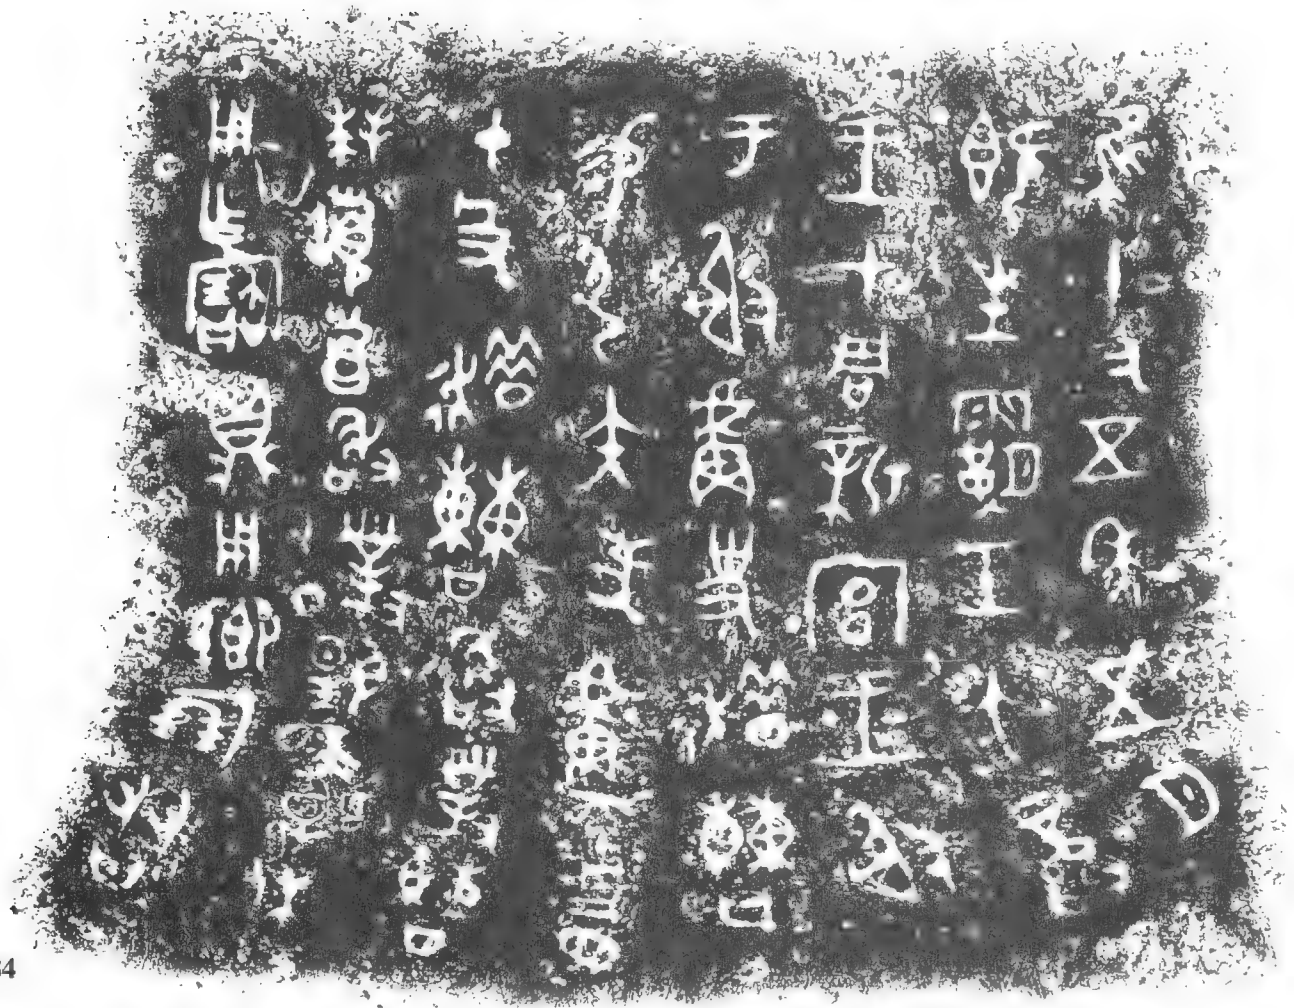 隹十又五年五月
既生霸壬午龏
王才周新宮王射
于射盧史趞曹
易弓矢虎盧
殳趞曹敢對曹
拜𩒨首敢對揚天子休
用乍寶鼎用鄉倗友